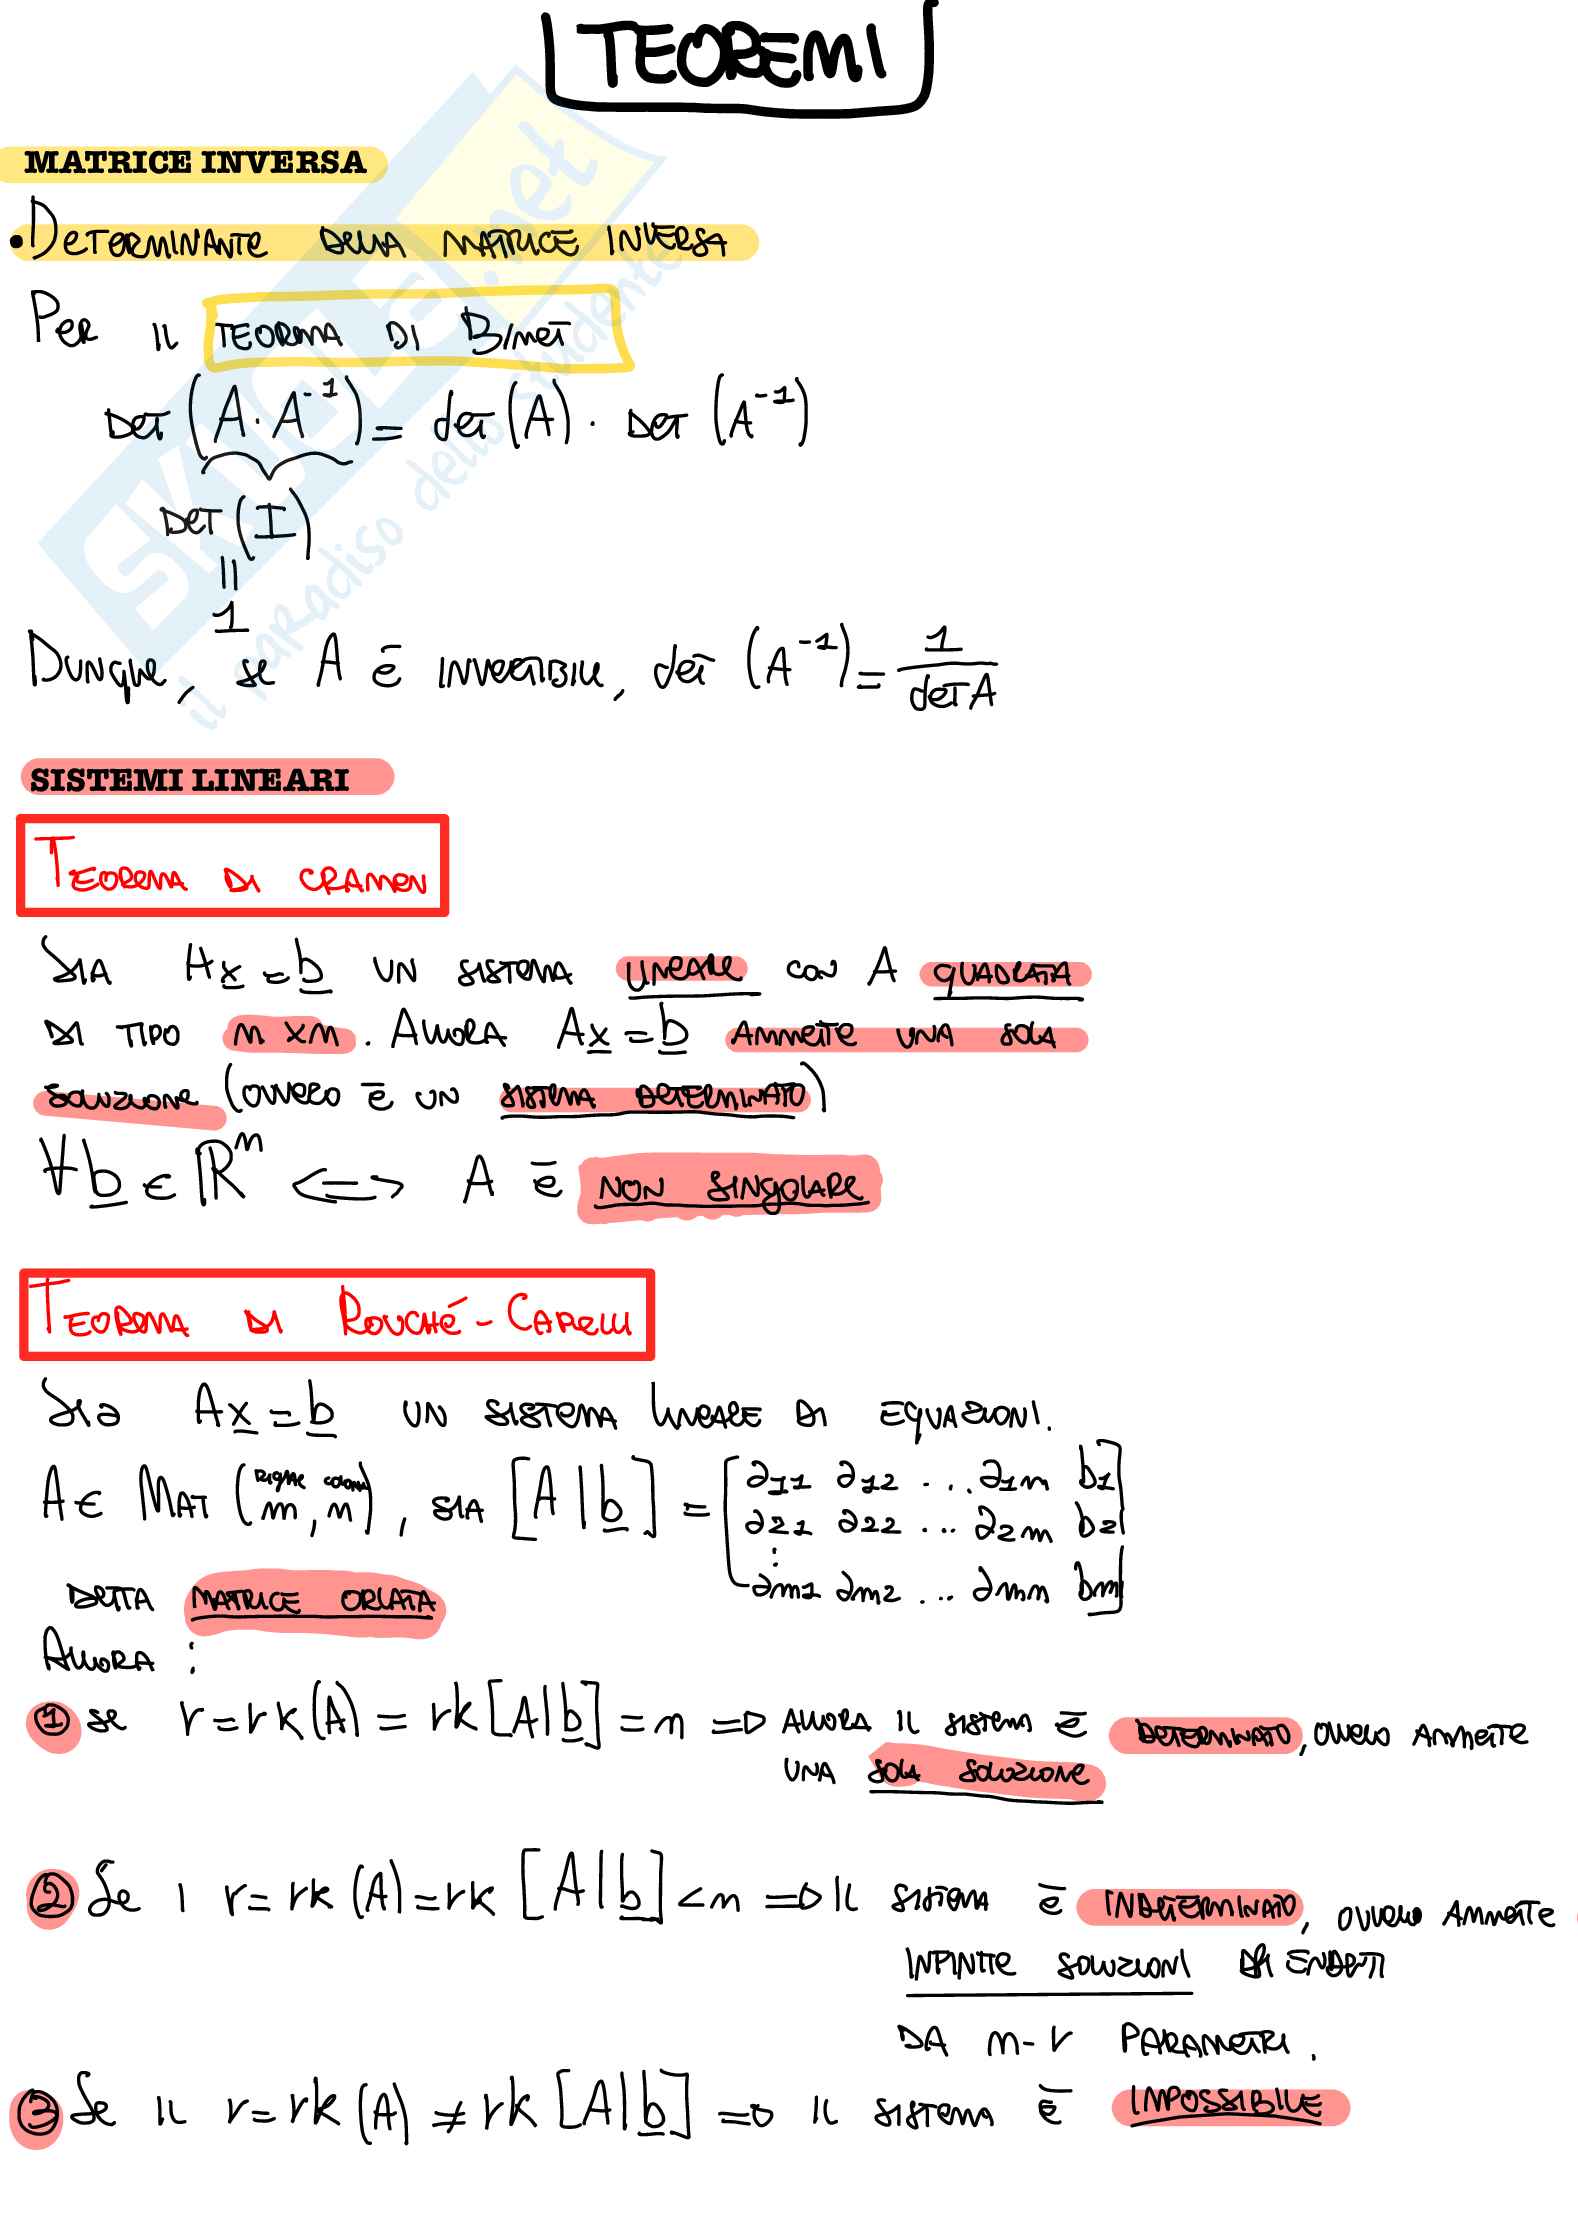 TEOREMI
MATRICE INVERSA
• DETERMINANTE DELLA MATRICE INVERSA
PER IL TEOREMA DI BINET
DET (A · A⁻¹) = det (A) · DET (A⁻¹)
DET (I)
=
1
DUNQUE, SE A È INVERTIBILE, det (A⁻¹) = 1/det A
SISTEMI LINEARI
TEOREMA DI CRAMER
SIA Ax = b UN SISTEMA LINEARE CON A QUADRATA
DI TIPO n x n. ALLORA Ax = b AMMETTE UNA SOLA
SOLUZIONE (OVVERO È UN SISTEMA DETERMINATO)
∀ b ∈ ℝⁿ <=> A È NON SINGOLARE
TEOREMA DI ROUCHÉ - CAPELLI
SIA Ax = b UN SISTEMA LINEARE DI EQUAZIONI.
RIGHE COLONNE
A ∈ MAT (m, n), SIA [A | b] = [a11 a12 ... a1n b1
a21 a22 ... a2n b2
⋮
am1 am2 ... amn bm]
DETTA MATRICE ORLATA
ALLORA :
① SE r = rk (A) = rk [A | b] = n => ALLORA IL SISTEMA È DETERMINATO, OVVERO AMMETTE
UNA SOLA SOLUZIONE
② SE I r = rk (A) = rk [A | b] < n => IL SISTEMA È INDETERMINATO, OVVERO AMMETTE
INFINITE SOLUZIONI DIPENDENTI
DA n - r PARAMETRI.
③ SE IL r = rk (A) ≠ rk [A | b] => IL SISTEMA È IMPOSSIBILE
SKUOLA.net
il paradiso dello studente